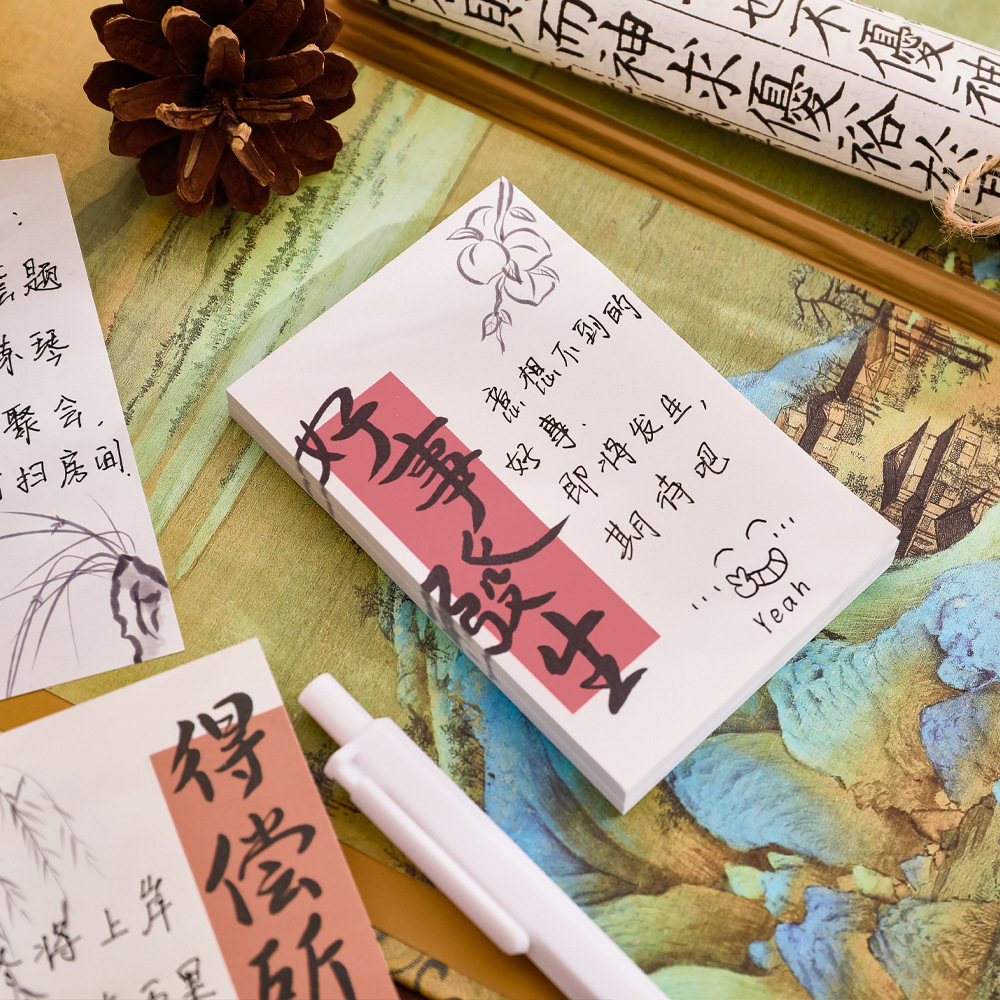 好事發生
意想不到的
好事.
即将发生,
期待吧
Yeah
得偿所
将上岸
题
琴
聚会.
扫房间
則而神
求優裕於
也不優神